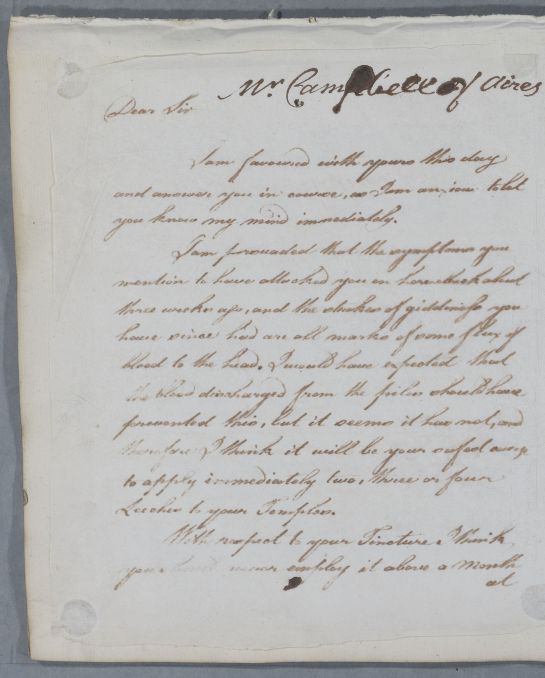 Mr Campbell of Aires
Dear Sir
I am favoured with yours this day
and answer you in course, as I am anxious to let
you know my mind immediately.
I am persuaded that the symptoms you
mention to have attacked you on horseback about
three weeks ago, and the strokes of giddiness you
have since had are all marks of some flux of
blood to the head. I would have expected that
the blood discharged from the piles should have
prevented this, but it seems it has not, and
therefore I think it will be your safest course
to apply immediately two, three or four
Leeches to your Temples.
With respect to your Tincture I think
you should never employ it above a Month
at